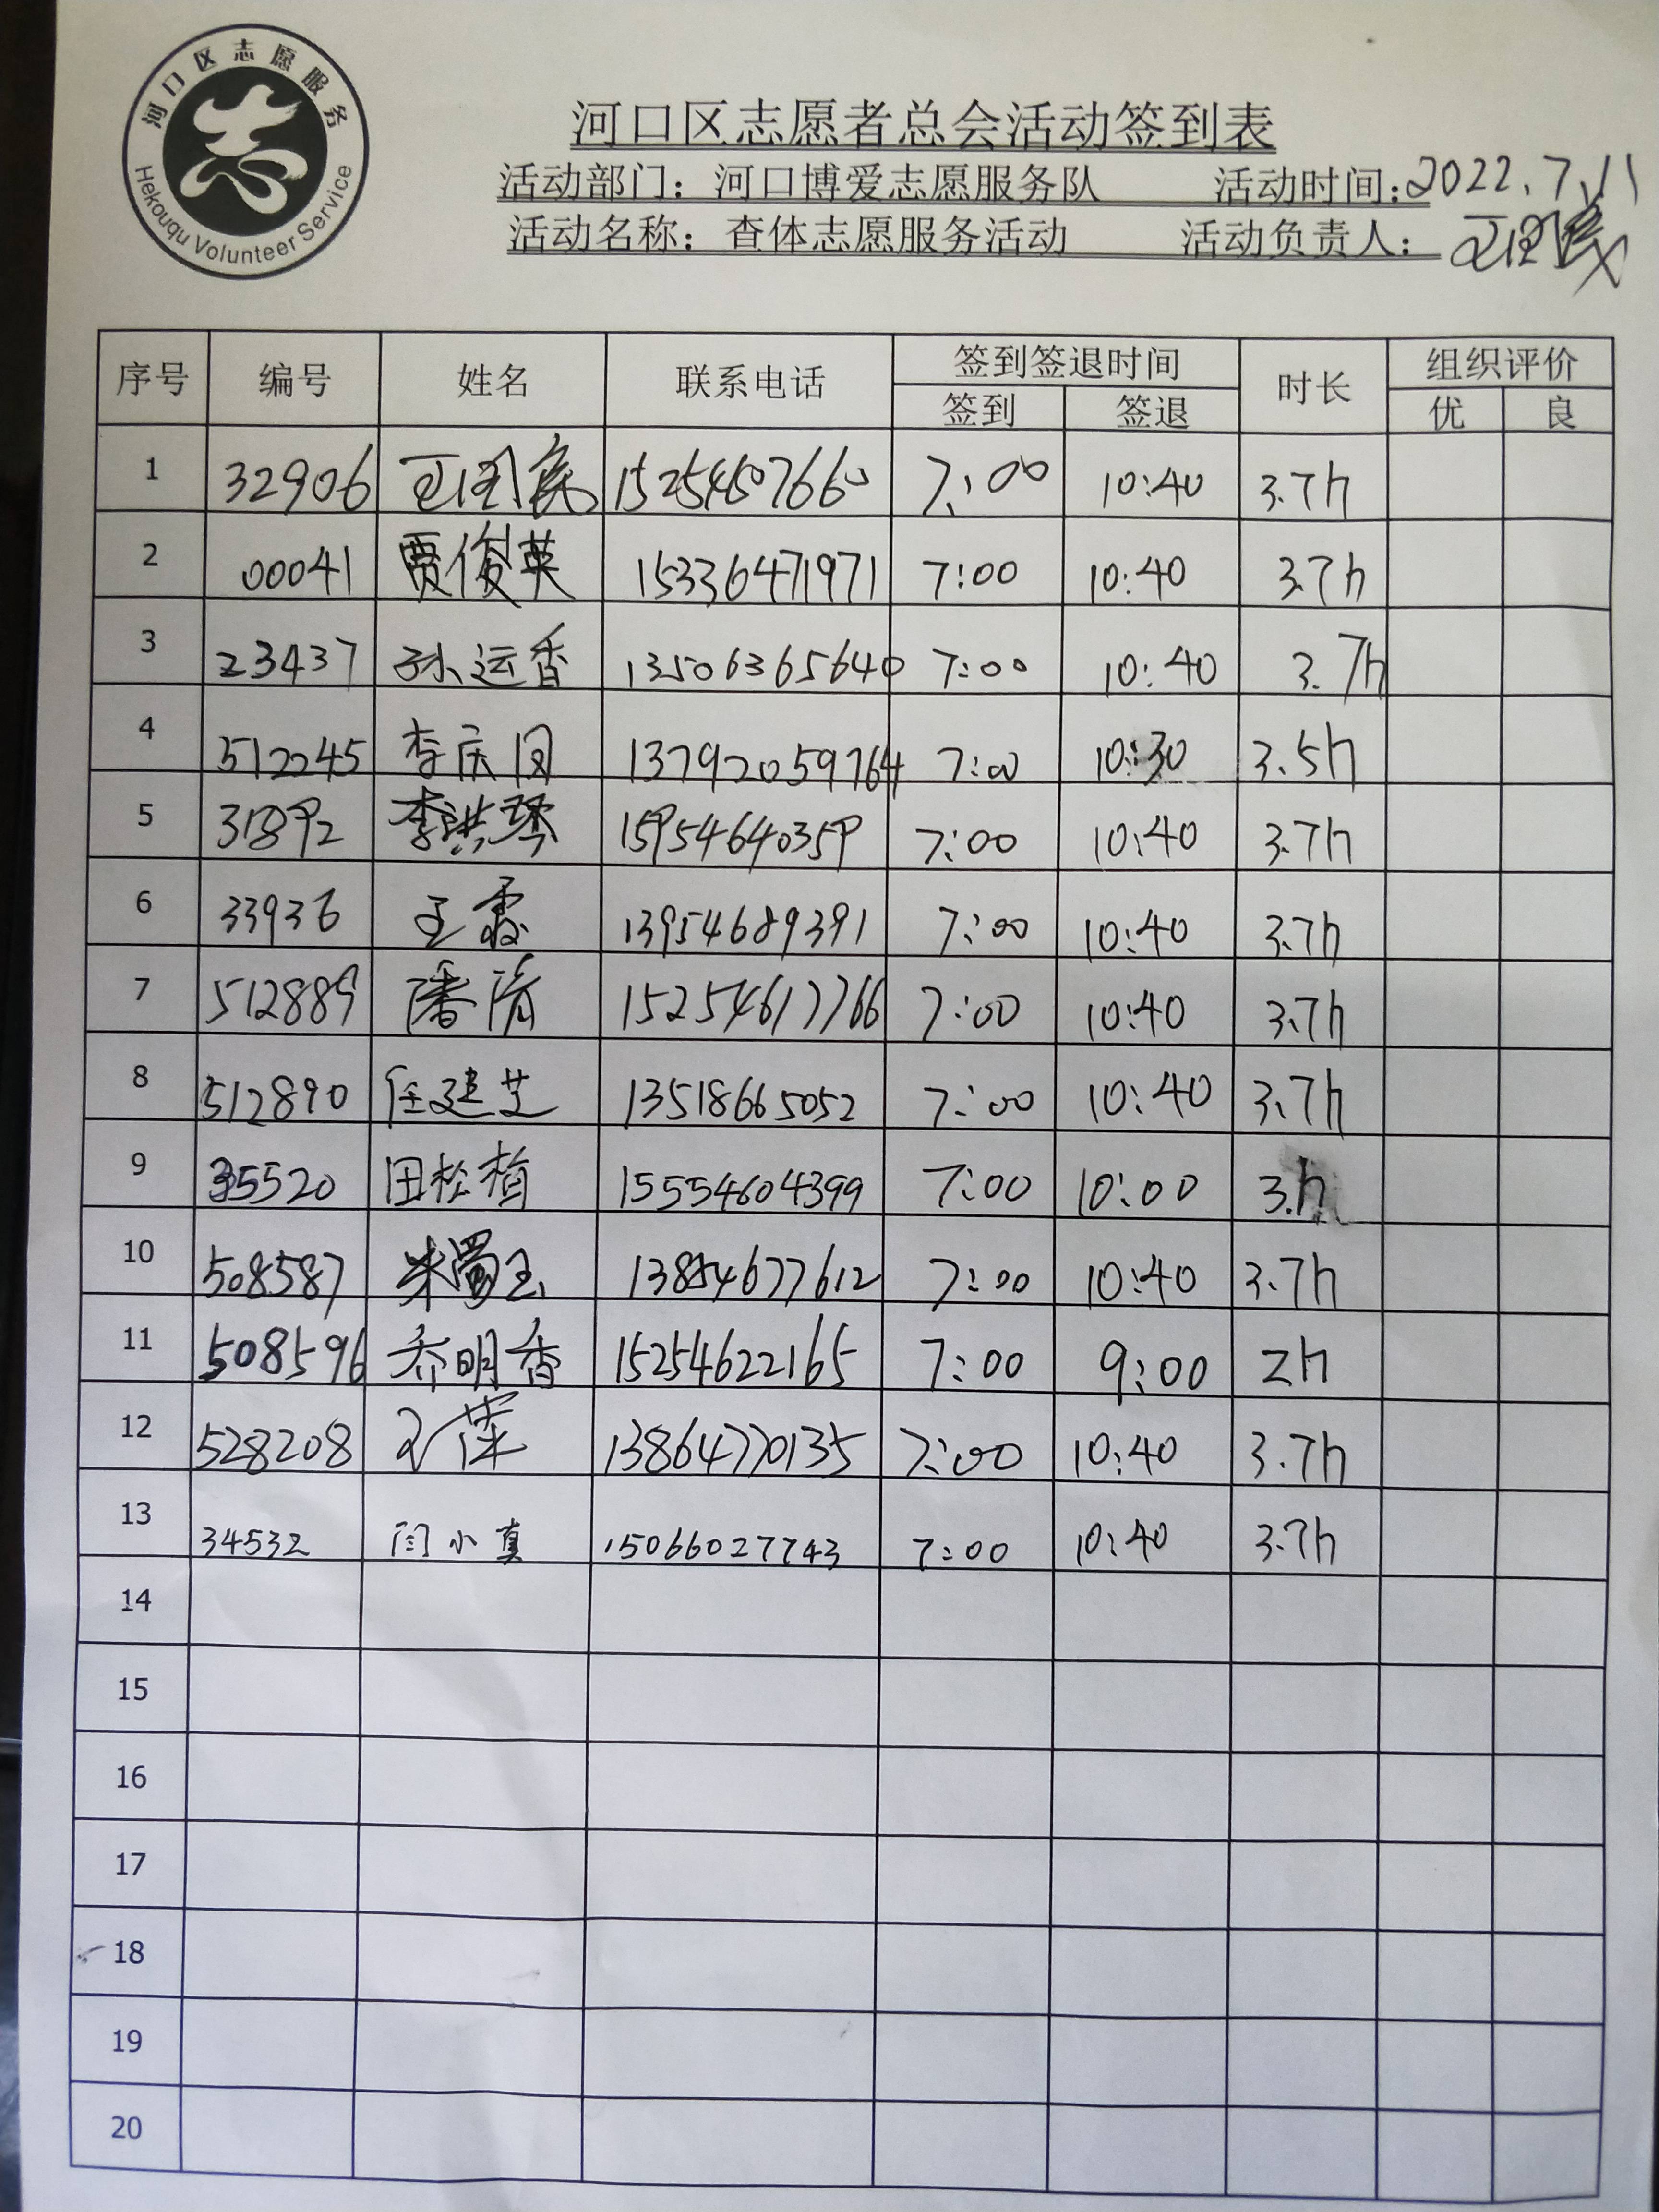 河口区志愿服务
Hekouqu Volunteer Service
河口区志愿者总会活动签到表
活动部门：河口博爱志愿服务队 活动时间：2022.7.11
活动名称：查体志愿服务活动 活动负责人：
序号 编号 姓名 联系电话 签到签退时间 时长 组织评价
签到 签退 优 良
1 32906 15254607660 7:00 10:40 3.7h
2 00041 贾俊英 15336471971 7:00 10:40 3.7h
3 23437 孙运香 13506365640 7:00 10:40 3.7h
4 512245 李庆 13792059764 7:00 10:30 3.5h
5 31892 李洪琴 15954640359 7:00 10:40 3.7h
6 33936 王霞 13954689391 7:00 10:40 3.7h
7 512889 潘 15254617766 7:00 10:40 3.7h
8 512890 任建芝 13518665052 7:00 10:40 3.7h
9 35520 田松梅 15554604399 7:00 10:00 3.h
10 508587 朱蜀玉 13854677612 7:00 10:40 3.7h
11 508596 乔明香 15254622165 7:00 9:00 2h
12 528208 13864770135 7:00 10:40 3.7h
13 34532 闫小真 15066027743 7:00 10:40 3.7h
14
15
16
17
18
19
20